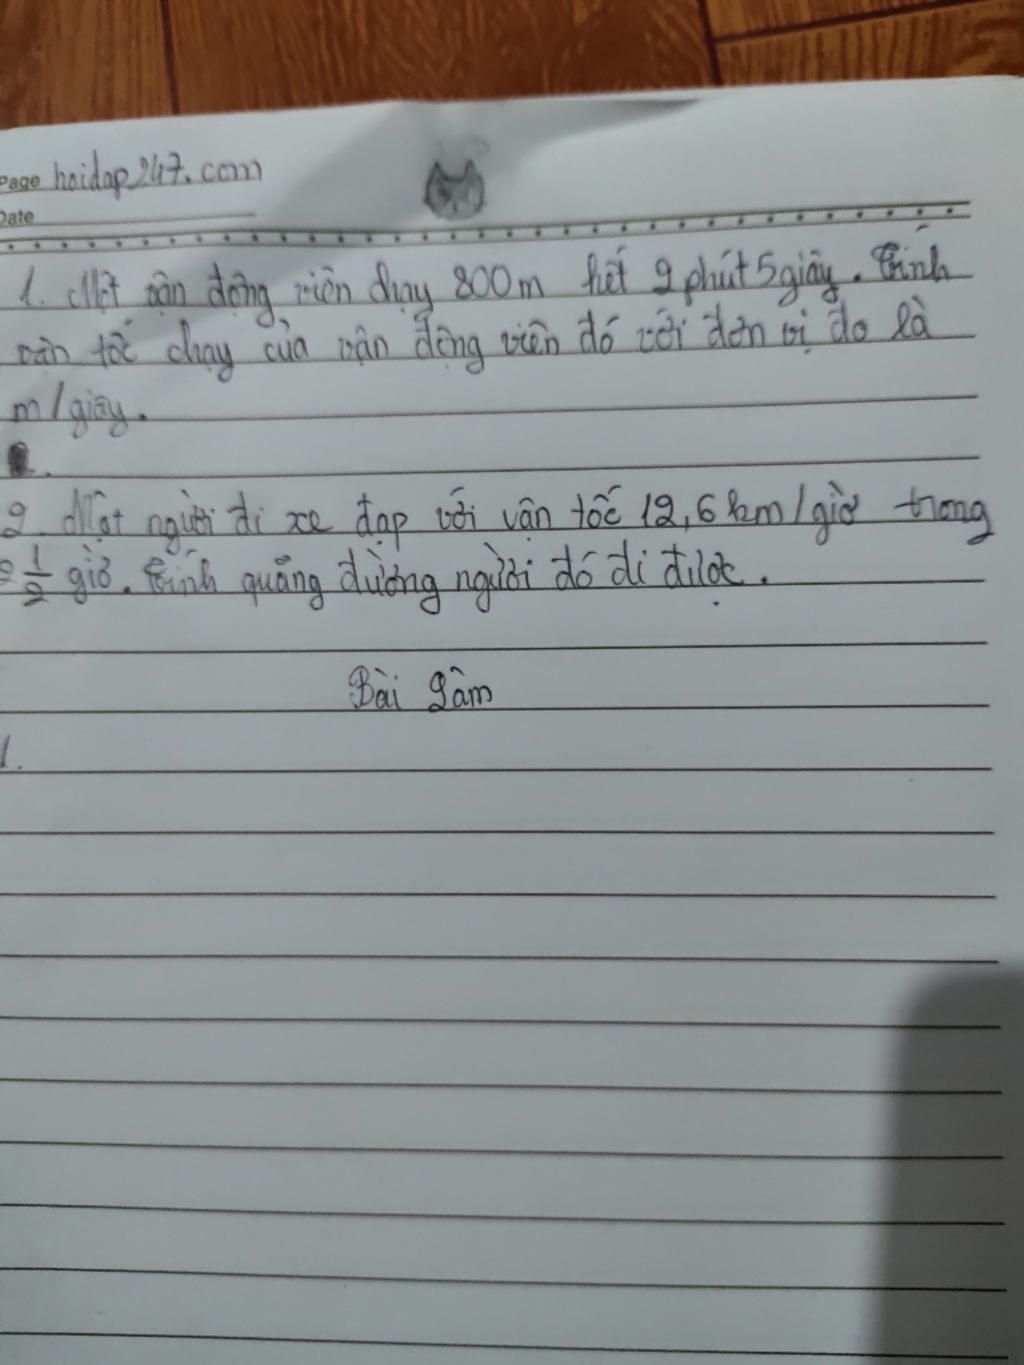 Page hoidap247.com
Date
1. Một vận động viên chạy 800m hết 2 phút 5 giây. Tính
vận tốc chạy của vận động viên đó với đơn vị đo là
m/giây.
2 Một người đi xe đạp với vận tốc 12,6 km/giờ trong
2 1/2 giờ. Tính quãng đường người đó đi được.
Bài làm
1.